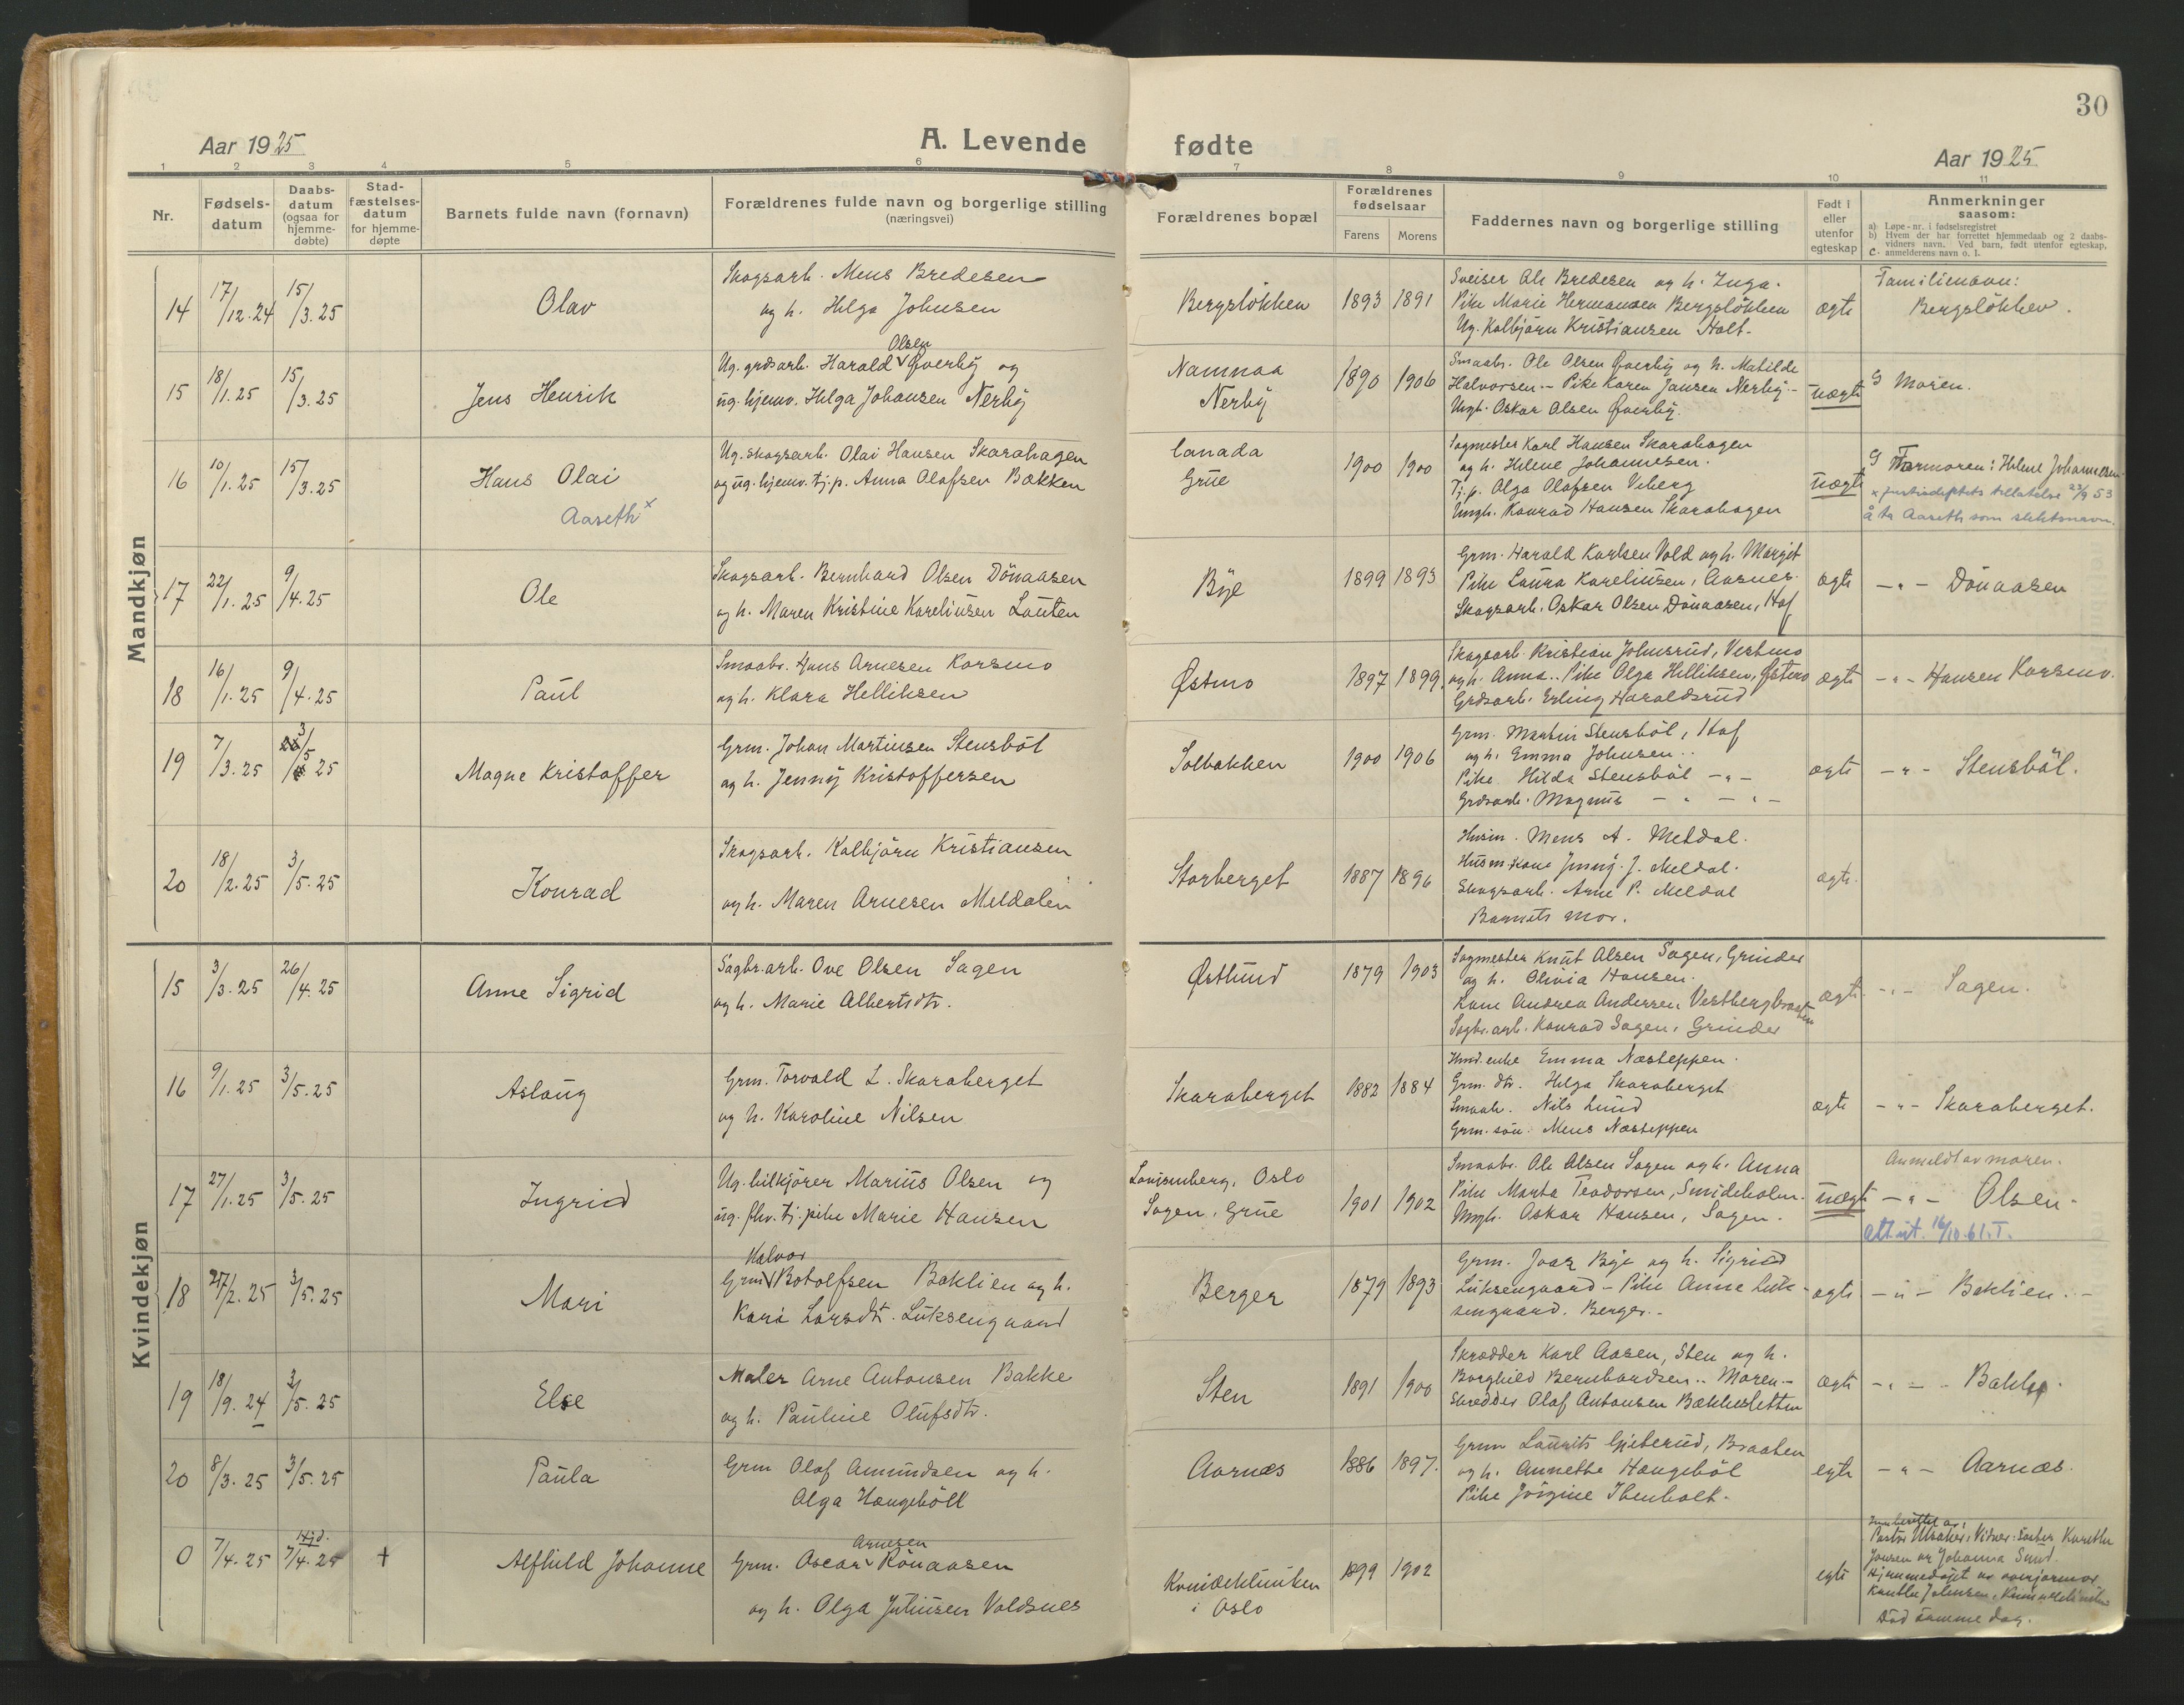 30
Aar 1925
A. Levende fødte
Aar 1925
1 2 3 4 5 6 7 8 9 10 11
Nr.
Fødsels-
datum
Daabs-
datum
(ogsaa for
hjemme-
døbte)
Stad-
fæstelses-
datum
for hjemme-
døpte
Barnets fulde navn (fornavn)
Forældrenes fulde navn og borgerlige stilling
(næringsvei)
Forældrenes bopæl
Forældrenes
fødselsaar
Farens Morens
Faddernes navn og borgerlige stilling
Født i
eller
utenfor
egteskap
Anmerkninger
saasom:
a) Løpe-nr. i fødselsregistret
b) Hvem der har forrettet hjemmedaab og 2 daabs-
vidners navn. Ved barn, født utenfor egteskap,
c- anmelderens navn o. l.
Mandkjøn
14 17/12.24 15/3.25 Olav
Skogsarb. Mens Bredesen
og h. Helga Johnsen
Bergsløkken 1893 1891
Sveiser Ole Bredesen og h. Inga.
Pike Marie Hermansen Bergsløkken
Ug. Kolbjørn Kristiansen Holt.
ægte
Familienavn:
Bergsløkken.
15 18/1.25 15/3.25 Jens Henrik
Olsen
Ug. grdsarb. Harald Øverby og
ug. hjemv. Helga Johansen Nerby
Namnaa
Nerby
1890 1906
Smaabr. Ole Olsen Øverby og h. Matilde
Halvorsen. - Pike Karen Jansen Nerby. -
Ungk. Oskar Olsen Øverby.
uægte
G Moren.
16 10/1.25 15/3.25 Hans Olai
Aaseth x
Ug. skogsarb. Olai Hansen Skarahagen
og ug. hjemv. tj.p. Anna Olafsen Bækken
Canada
Grue
1900 1900
Sagmester Karl Hansen Skarahagen
og h. Helene Johannesen.
Tj.p. Olga Olafsen Viberg
Ungk. Konrad Hansen Skarahagen
uægte
G Farmoren: Helene Johannesen.
x justisdeptets tillatelse 23/9 53
å ta Aaseth som slektsnavn.
17 22/1.25 9/4.25 Ole
Skogsarb. Bernhard Olsen Dönaasen
og h. Maren Kristine Kareliusen Lauten
Bye 1899 1893
Grm. Harald Karlsen Vold og h. Margit
Pike Laura Kareliusen, Aasnes.
Skogsarb. Oskar Olsen Dönaasen, Hof
ægte
- " - Dönaasen
18 16/1.25 9/4.25 Paul
Smaabr. Hans Arnesen Korsmo
og h. Klara Helliksen
Østmo 1897 1899.
Skogsarb. Kristian Johnsrud, Vestmo
og h. Anna.. Pike Olga Helliksen, Østmo
Grdsarb. Erling Haraldsrud
ægte
- " - Hansen Korsmo.
19 7/3.25 3/5 25 Magne Kristoffer
Grm. Johan Martinsen Stensböl
og h. Jenny Kristoffersen
Solbakken 1900 1906
Grm. Martin Stensböl, Hof
og h. Emma Johnsen..
Pike Hilda Stensböl - " -
Grdsarb. Magnus - " - " -
ægte
- " - Stensböl.
20 18/2.25 3/5.25 Konrad
Skogsarb. Kolbjörn Kristiansen
og h. Maren Arnesen Meldalen
Storberget 1887 1896
Husm. Mens A. Meldal.
Husm. kone Jenny J. Meldal.
Skogsarb. Arne P. Meldal
Barnets mor.
ægte.
Kvindekjøn
15 3/3.25 26/4.25 Anne Sigrid
Sagbr.arb. Ove Olsen Sagen
og h. Marie Albertsdtr.
Østlund 1879 1903
Sagmester Knut Olsen Sagen, Grinder
og h. Olivia Hansen.
Kone Andrea Andersen Vestbergbraaten
Sagbr.arb. Konrad Sagen, Grinder
ægte.
- " - Sagen.
16 9/1.25 3/5.25 Aslaug
Grm. Torvald L. Skaraberget
og h. Karoline Nilsen
Skaraberget 1882 1884
Emma Næsteppen.
Grm. dtr. Helga Skaraberget
Smaabr. Nils Lund
Grm. sön. Mens Næsteppen
ægte
- " - Skaraberget.
17 27/1.25 3/5.25 Ingrid
Ug. bilkjörer Marius Olsen og
ug. fhv. tj.pike Marie Hansen
Lovisenberg, Oslo
Sagen, Grue
1901 1902
Smaabr. Ole Olsen Sagen og h. Anna
Pike Marta Teodorsen, Smideholen.
Ungk. Oskar Hansen, Sagen.
uægte
Anmeldt av moren.
- " - Olsen.
Att. ut. 16/10.61. T.
18 27/2.25 3/5.25 Mari
Halvor
Grm Botolfsen Baklien og h.
Kari Larsdtr. Luksengaard
Berger 1879 1893
Grm. Joar Bye og h. Sigrid
Luksengaard - Pike Anne Luk-
sengaard. Berger. -
ægte
- " - Baklien. -
19 18/9.24 3/5.25 Else
Maler Arne Antonsen Bakke
og h. Pauline Olufsdtr.
Sten 1891 1900
Skrædder Karl Aasen, Sten og h.
Borghild Bernhardsen.. Moren. -
Skredder Olaf Antonsen Bækkesletten
ægte
- " - Bakke.
20 8/3.25 3/5.25 Paula
Grm Olaf Amundsen og h.
Olga Haugeböll
Aarnæs 1886 1897.
Grm Laurits Gjeterud, Braaten
og h. Annette Haugeböl
Pike Jörgine Ibenholt.
egte
- " - Aarnæs.
0 7/4.25 Hjd. 7/4.25 + Alfhild Johanne
Arnesen
Grm. Oscar Rönaasen
og h. Olga Juliusen Voldsnes
Kvindeklinikken
i Oslo
1899 1902
egte
Innberettet av:
Pastor Ulsaker. Vidner: Søster Karethe
Jansen og Johanna Sund.
Hjemmedøpt av overjormor
Død samme dag.